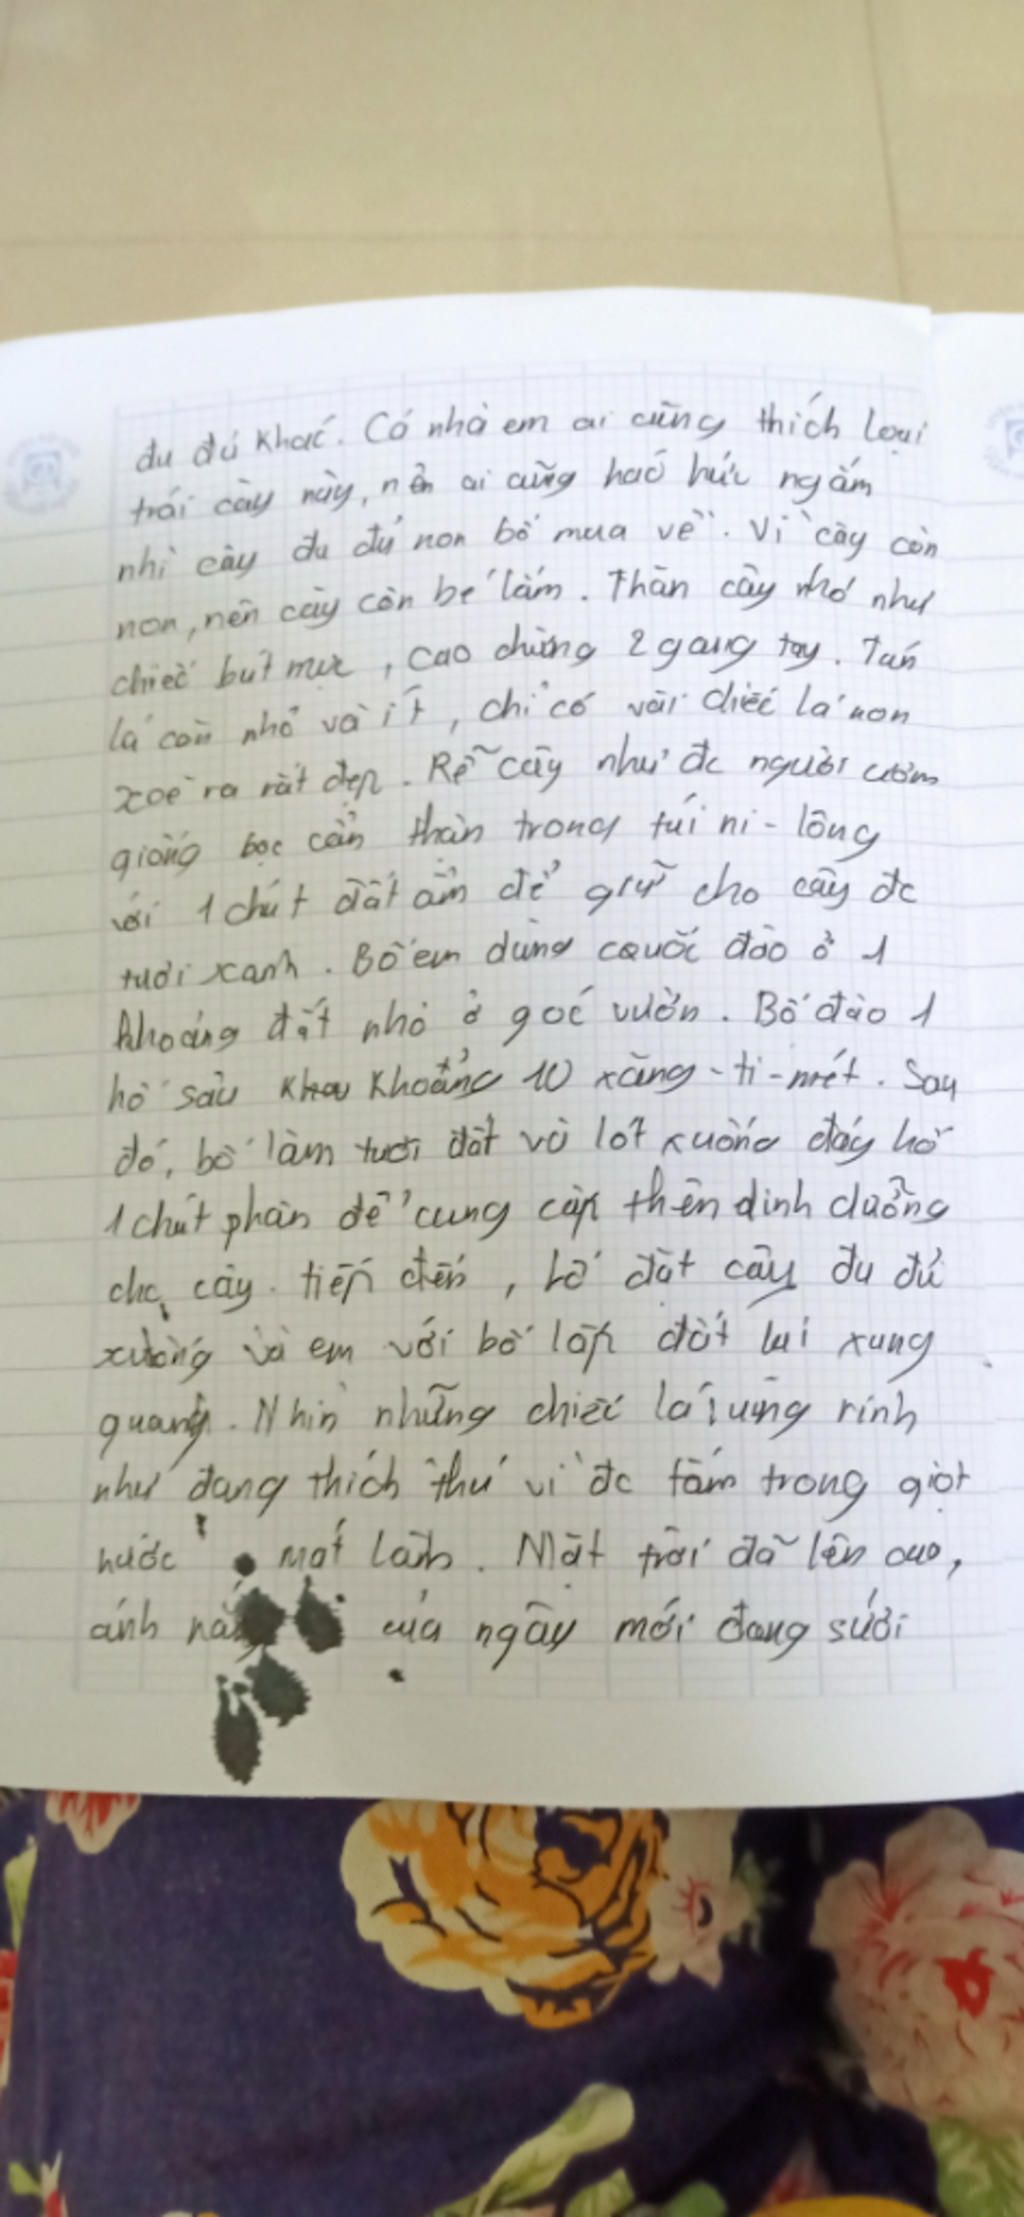 đu đủ khác. Cả nhà em ai cũng thích loại
trái cây này, nên ai cũng háo hức ngắm
nhì cây đu đủ non bố mua về. Vì cây còn
non, nên cây còn bé lắm. Thân cây nhỏ như
chiếc bút mực, cao chừng 2 gang tay. Tán
lá còn nhỏ và ít, chỉ có vài chiếc lá non
xoè ra rất đẹp. Rễ cây như đc người ươm
giống bọc cẩn thận trong túi ni-lông
với 1 chút đất ẩm để giữ cho cây đc
tươi xanh. Bố em dùng cquốc đào ở 1
khoảng đất nhỏ ở góc vườn. Bố đào 1
hố sâu khoảng 10 xăng-ti-mét. Sau
đó, bố làm tươi đất và lót xuống đáy hố
1 chút phân để cung cấp thên dinh dưỡng
cho cây. tiếp đến, bố đặt cây đu đủ
xuống và em với bố lấp đất lại xung
quang. Nhìn những chiếc lá rung rinh
như đang thích thú vì đc tắm trong giọt
nước mát lành. Mặt trời đã lên cao,
ánh nắng của ngày mới đang sưởi